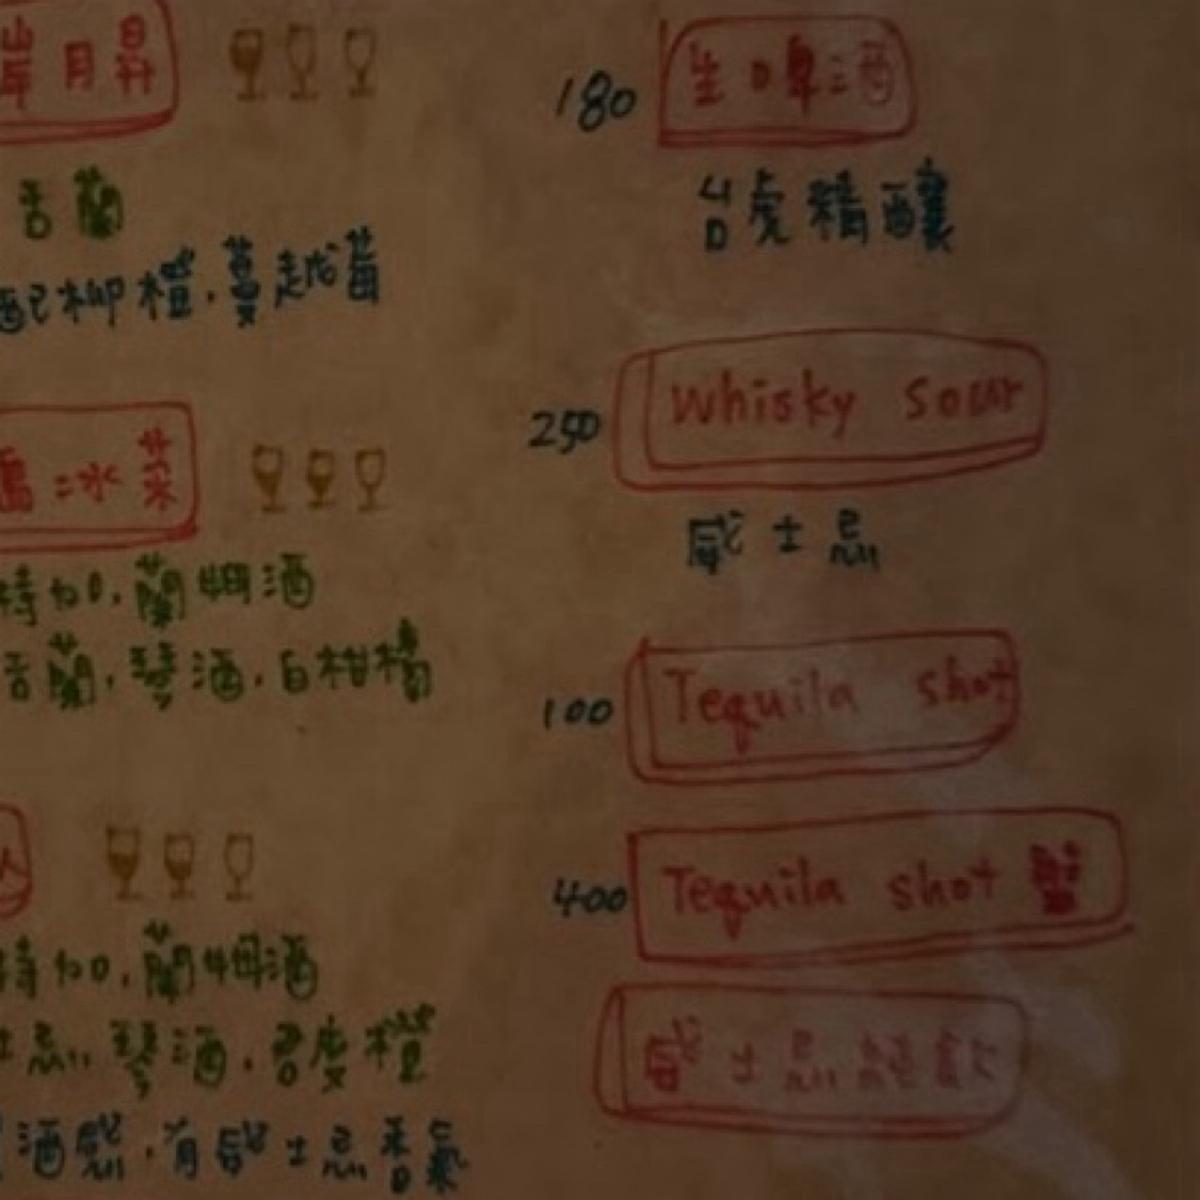 岸月昇
舌蘭
配柳橙，蔓越莓
=冰茶
特加，蘭姆酒
舌蘭，琴酒，白柑橘
人
特加，蘭姆酒
士忌，琴酒，君度橙
酒感，有威士忌香氣
180 生啤酒
台虎精釀
250 Whisky Sour
威士忌
100 Tequila shot
400 Tequila shot
威士忌純飲